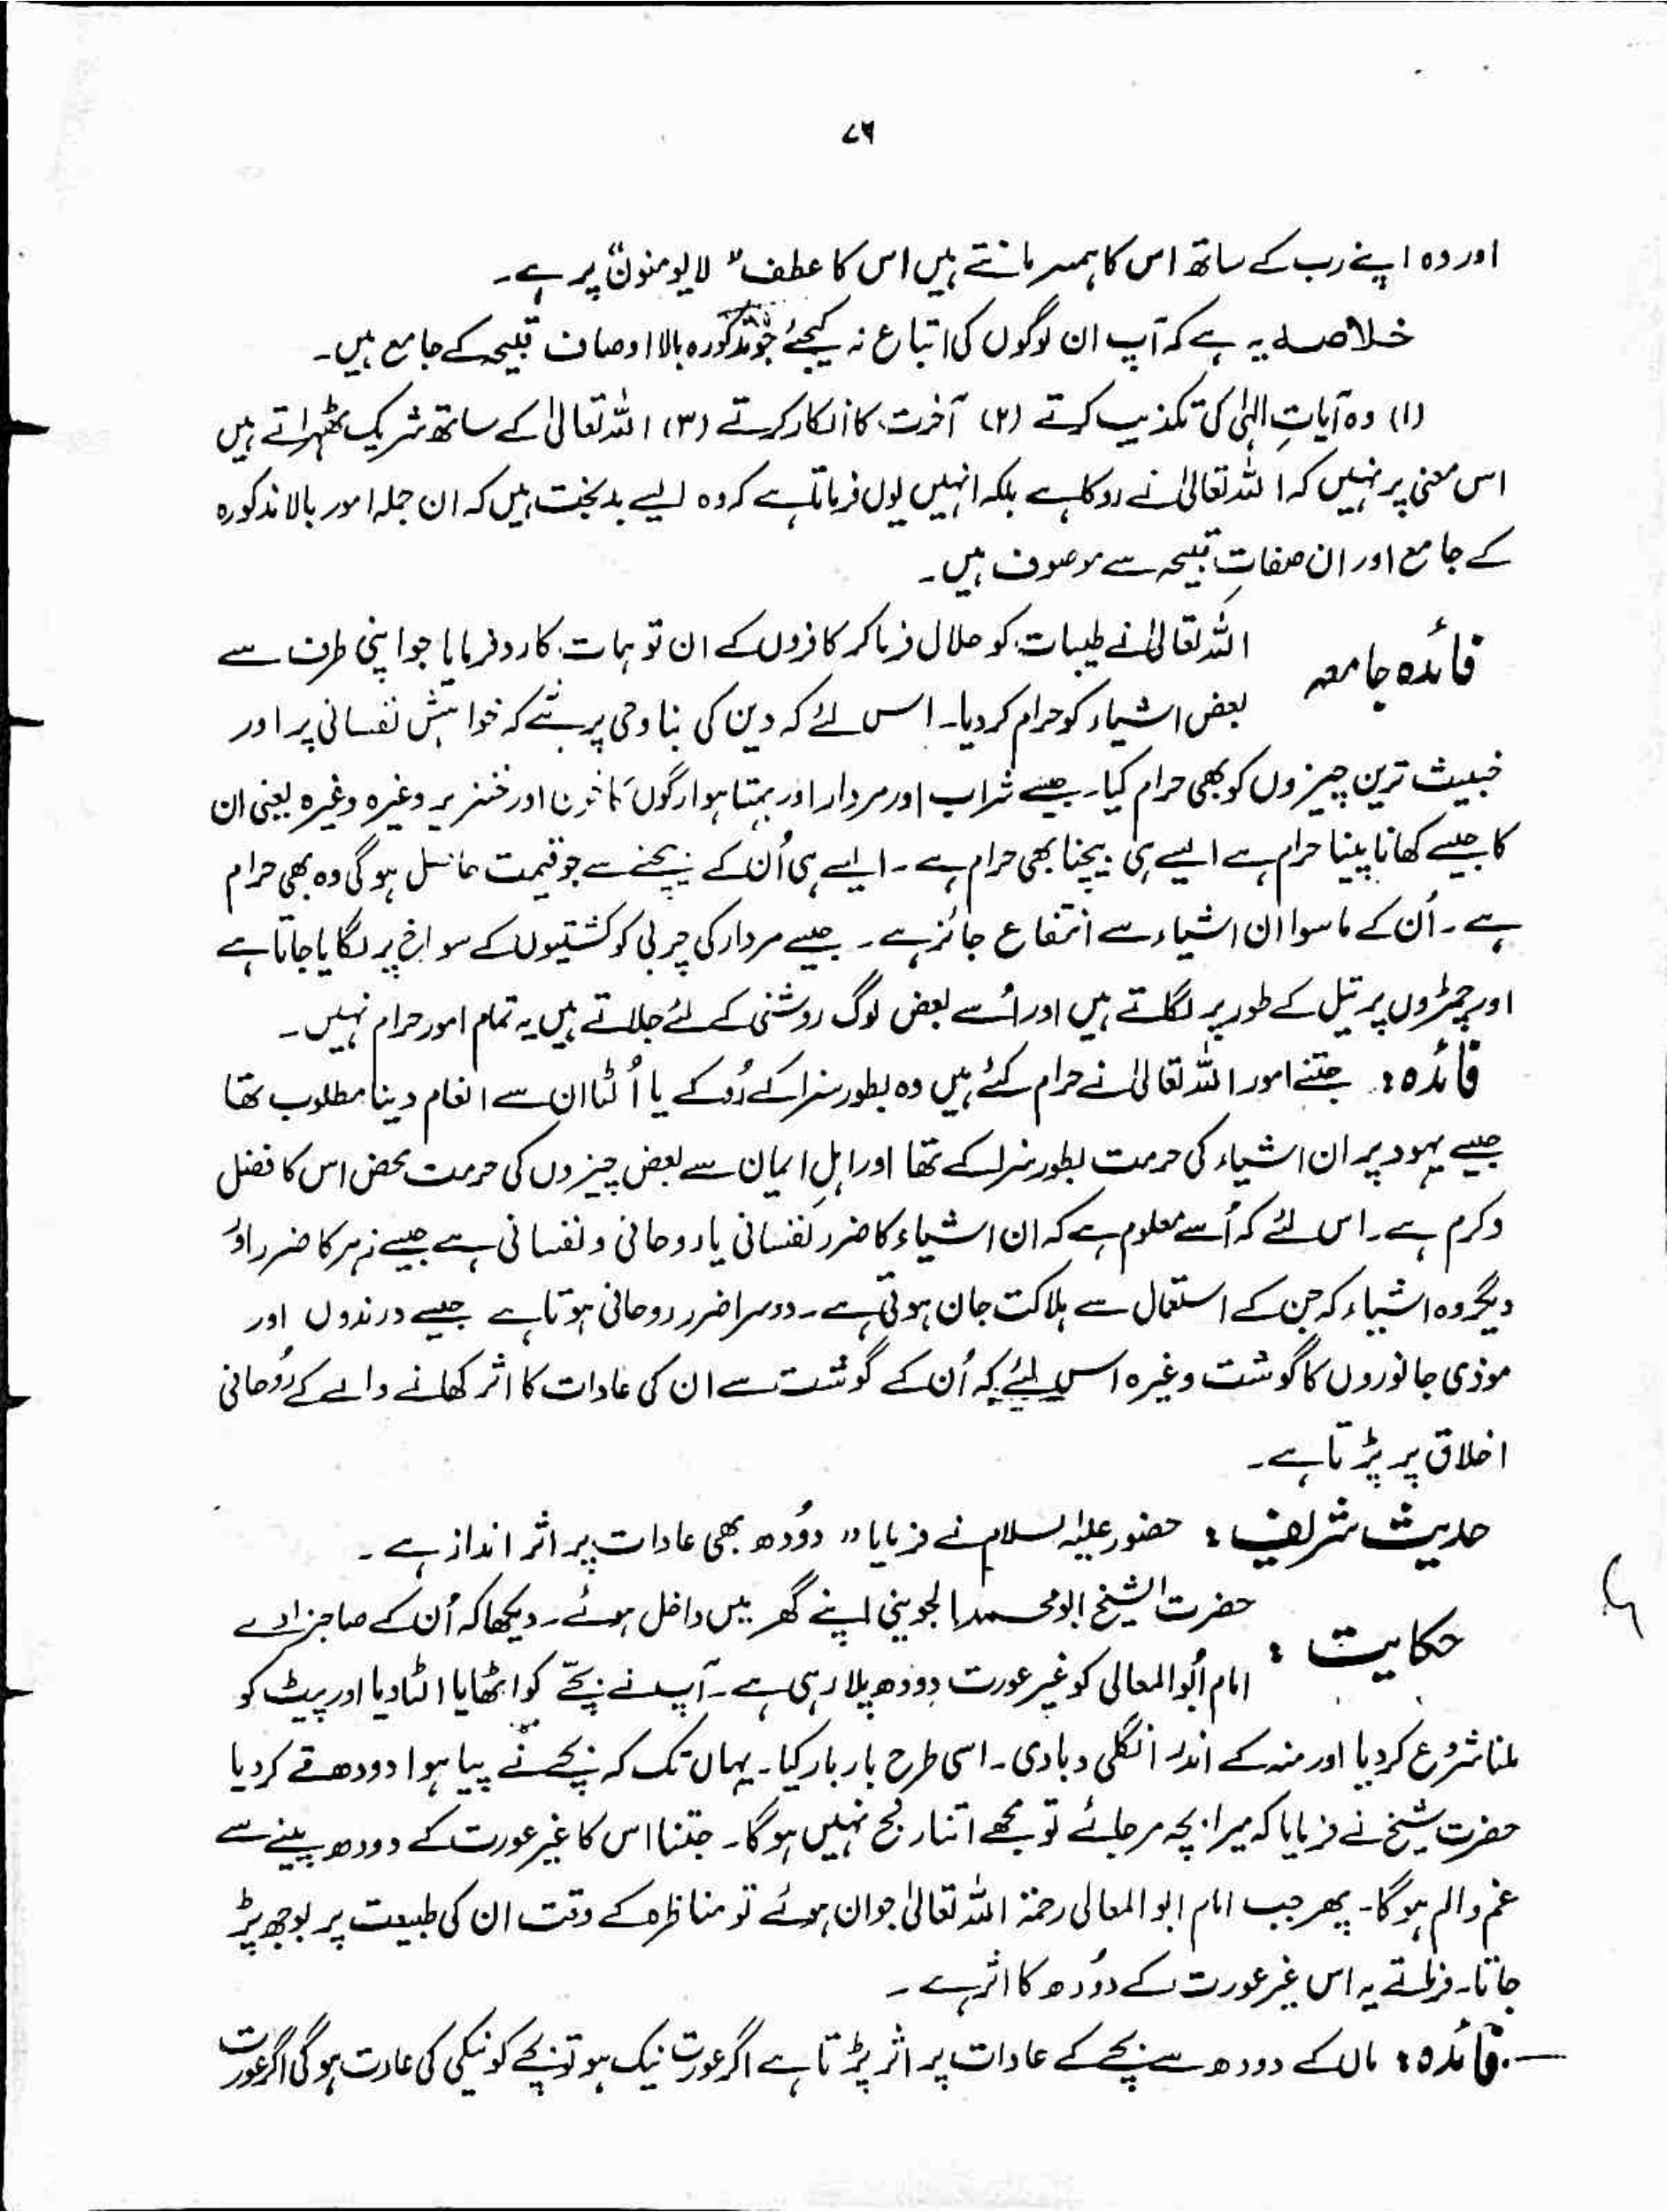 ۷۶
اور وہ اپنے رب کے ساتھ اس کا ہمسر مانتے ہیں اس کا عطف "لایومنون" پر ہے۔
خلاصہ یہ ہے کہ آپ ان لوگوں کی اتباع نہ کیجئے جو مذکورہ بالا اوصاف قبیحہ کے جامع ہیں۔
(۱) وہ آیاتِ الٰہی کی تکذیب کرتے (۲) آخرت کا انکار کرتے (۳) اللہ تعالیٰ کے ساتھ شریک ٹھہراتے ہیں
اس معنی پر نہیں کہ اللہ تعالیٰ نے روکا ہے بلکہ انہیں یوں فرماتا ہے کہ وہ ایسے بدبخت ہیں کہ ان جملہ امور بالا مذکورہ
کے جامع اور ان صفاتِ قبیحہ سے موصوف ہیں۔
فائدہ جامعہ اللہ تعالیٰ نے طیبات کو حلال فرما کر کافروں کے ان توہمات کا رد فرمایا جو اپنی طرف سے
بعض اشیاء کو حرام کر دیا۔ اس لئے کہ دین کی بنا وحی پر ہے کہ خواہش نفسانی پر اور
خبیث ترین چیزوں کو بھی حرام کیا۔ جیسے شراب اور مردار اور بہتا ہوا رگوں کا خون اور خنزیر وغیرہ وغیرہ یعنی ان
کا جیسے کھانا پینا حرام ہے ایسے ہی بیچنا بھی حرام ہے۔ ایسے ہی اُن کے بیچنے سے جو قیمت حاصل ہوگی وہ بھی حرام
ہے۔ اُن کے ماسوا ان اشیاء سے انتفاع جائز ہے۔ جیسے مردار کی چربی کو کشتیوں کے سوراخ پر لگایا جاتا ہے
اور چمڑوں پر تیل کے طور پر لگاتے ہیں اور اُسے بعض لوگ روشنی کے لئے جلاتے ہیں یہ تمام امور حرام نہیں۔
فائدہ: جتنے امور اللہ تعالیٰ نے حرام کئے ہیں وہ بطور سزا کے رُوکے یا اُلٹا ان سے انعام دینا مطلوب تھا
جیسے یہود پر ان اشیاء کی حرمت بطور سزا کے تھا اور اہلِ ایمان سے بعض چیزوں کی حرمت محض اس کا فضل
وکرم ہے۔ اس لئے کہ اُسے معلوم ہے کہ ان اشیاء کا ضرر نفسانی یا روحانی ونفسانی ہے جیسے زہر کا ضرر اور
دیگر وہ اشیاء کہ جن کے استعمال سے ہلاکت جان ہوتی ہے۔ دوسرا ضرر روحانی ہوتا ہے جیسے درندوں اور
موذی جانوروں کا گوشت وغیرہ اس لئے کہ اُن کے گوشت سے ان کی عادات کا اثر کھانے والے کے رُوحانی
اخلاق پر پڑتا ہے۔
حدیث شریف: حضور علیہ السلام نے فرمایا "دوُدھ بھی عادات پر اثر انداز ہے۔
حکایت: حضرت الشیخ ابومحمد الجوینی اپنے گھر میں داخل ہوئے۔ دیکھا کہ اُن کے صاحبزادے
امام اُبوالمعالی کو غیر عورت دودھ پلا رہی ہے۔ آپ نے بچے کو اٹھایا الٹا دیا اور پیٹ کو
ملنا شروع کر دیا اور منہ کے اندر انگلی دبا دی۔ اسی طرح بار بار کیا۔ یہاں تک کہ بچے نے پیا ہوا دودھ قے کر دیا
حضرت شیخ نے فرمایا کہ میرا بچہ مر جائے تو مجھے اتنا رنج نہیں ہوگا۔ جتنا اس کا غیر عورت کے دودھ پینے سے
غم والم ہوگا۔ پھر جب امام ابوالمعالی رحمۃ اللہ تعالیٰ جوان ہوئے تو مناظرہ کے وقت ان کی طبیعت پر بوجھ پڑ
جاتا۔ فرماتے یہ اس غیر عورت کے دوُدھ کا اثر ہے۔
فائدہ: ماں کے دودھ سے بچے کے عادات پر اثر پڑتا ہے اگر عورت نیک ہو تو بچے کو نیکی کی عادت ہوگی اگر عورت